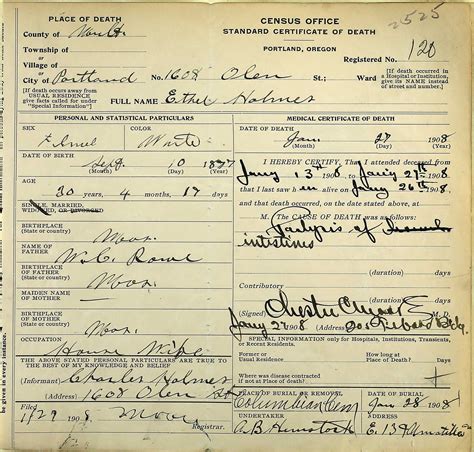 PLACE OF DEATH
County of Mult.
Township of
or
Village of
or
City of Portland No. 1608 Olen St.; Ward
[If death occurs away from
USUAL RESIDENCE
give facts called for under
"Special Information"]
FULL NAME Ethel Holmes
CENSUS OFFICE
STANDARD CERTIFICATE OF DEATH
PORTLAND, OREGON
2525
Registered No. 120
[If death occurred in
a Hospital or Institution,
give its NAME instead
of street and number.]
PERSONAL AND STATISTICAL PARTICULARS
SEX
COLOR White
DATE OF BIRTH
Sept 10 1877
AGE
30 years, 4 months, 17 days
SINGLE, MARRIED,
WIDOWED, OR DIVORCED
BIRTHPLACE
(State or country)
NAME OF
FATHER W. C. Rowe
BIRTHPLACE
OF FATHER
(State or country)
MAIDEN NAME
OF MOTHER
BIRTHPLACE
OF MOTHER
(State or country)
OCCUPATION
House Wife
THE ABOVE STATED PERSONAL PARTICULARS ARE TRUE TO THE
BEST OF MY KNOWLEDGE AND BELIEF
(Informant) Charles Holmes
(Address) 1608 Olen St
Filed
1/29 1908
MEDICAL CERTIFICATE OF DEATH
DATE OF DEATH
Jan 27 1908
I HEREBY CERTIFY, That I attended deceased
from Jany 13th 1908, Jany 27th 1908
that I last saw h er alive on Jany 26th 1908
and that death occurred, on the date stated above, at
M. The CAUSE OF DEATH was as follows:
Paralysis of
intestines
(duration) days
Contributory
(duration) days
(Signed) Chester M. D.
Jany 27 1908 (Address) Bldg.
SPECIAL INFORMATION only for Hospitals, Institutions, Transients,
or Recent Residents.
Former or
Usual Residence
How long at
Place of Death? Days
Where was disease contracted
if not at Place of Death?
PLACE OF BURIAL OR REMOVAL
Columbian Cem
DATE OF BURIAL
Jan 28 1908
UNDERTAKER
A B Hemstock
ADDRESS
E. 13 & Umatilla